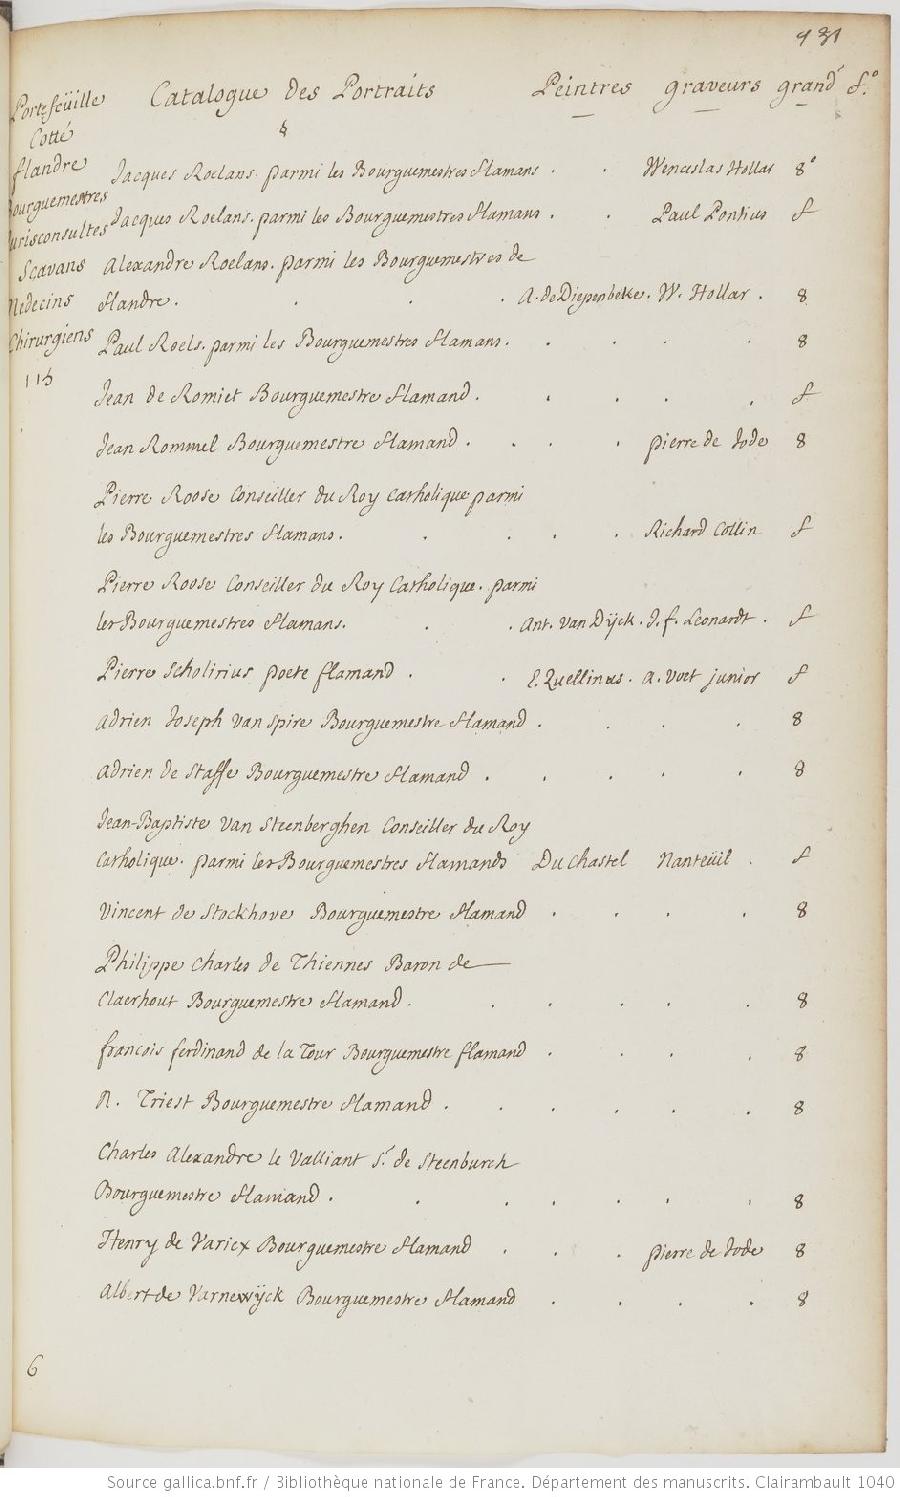 931
Portefeüille
Cotté
flandre
Bourguemestres
Jurisconsultes
Scavans
Medecins
Chirurgiens
115
Catalogue des Portraits Peintres graveurs grandr f.°
§
Jacques Roelans. parmi les Bourguemestres flamans . . Wenceslas Hollar 8°
Jacques Roelans. parmi les Bourguemestres flamans . . Paul Pontius f
Alexandre Roelans. parmi les Bourguemestres de
flandre. . . . A. de Diepenbeke. W. Hollar . 8
Paul Roels. parmi les Bourguemestres flamans. . . . . 8
Jean de Romiet Bourguemestre flamand . . . . . f
Jean Rommel Bourguemestre flamand . . . . pierre de Jode 8
Pierre Roose Conseiller du Roy Catholique parmi
les Bourguemestres flamans. . . . . Richard Collin f
Pierre Roose Conseiller du Roy Catholique. parmi
les Bourguemestres flamans. . . Ant. van Dÿck. J. f. Leonardt . f
Pierre Scholirius poete flamand . . E. Quellinus. A. Voet junior f
Adrien Joseph van Spire Bourguemestre flamand . . . . 8
Adrien de Staffe Bourguemestre flamand . . . . . 8
Jean-Baptiste Van Steenberghen Conseiller du Roy
Catholique. parmi les Bourguemestres flamands Du Chastel Nanteüil . f
Vincent de Stockhove Bourguemestre flamand . . . . 8
Philippe Charles de Thiennes Baron de
Claerhout Bourguemestre flamand. . . . . . 8
francois ferdinand de la Tour Bourguemestre flamand . . . . 8
N. Triest Bourguemestre flamand . . . . . . 8
Charles Alexandre le Valliant Sr. de Steenburch
Bourguemestre flamand . . . . . . . 8
Henry de Variex Bourguemestre flamand . . . pierre de Jode 8
Albert de Varnewÿck Bourguemestre flamand . . . . 8
6
Source gallica.bnf.fr / Bibliothèque nationale de France. Département des manuscrits. Clairambault 1040